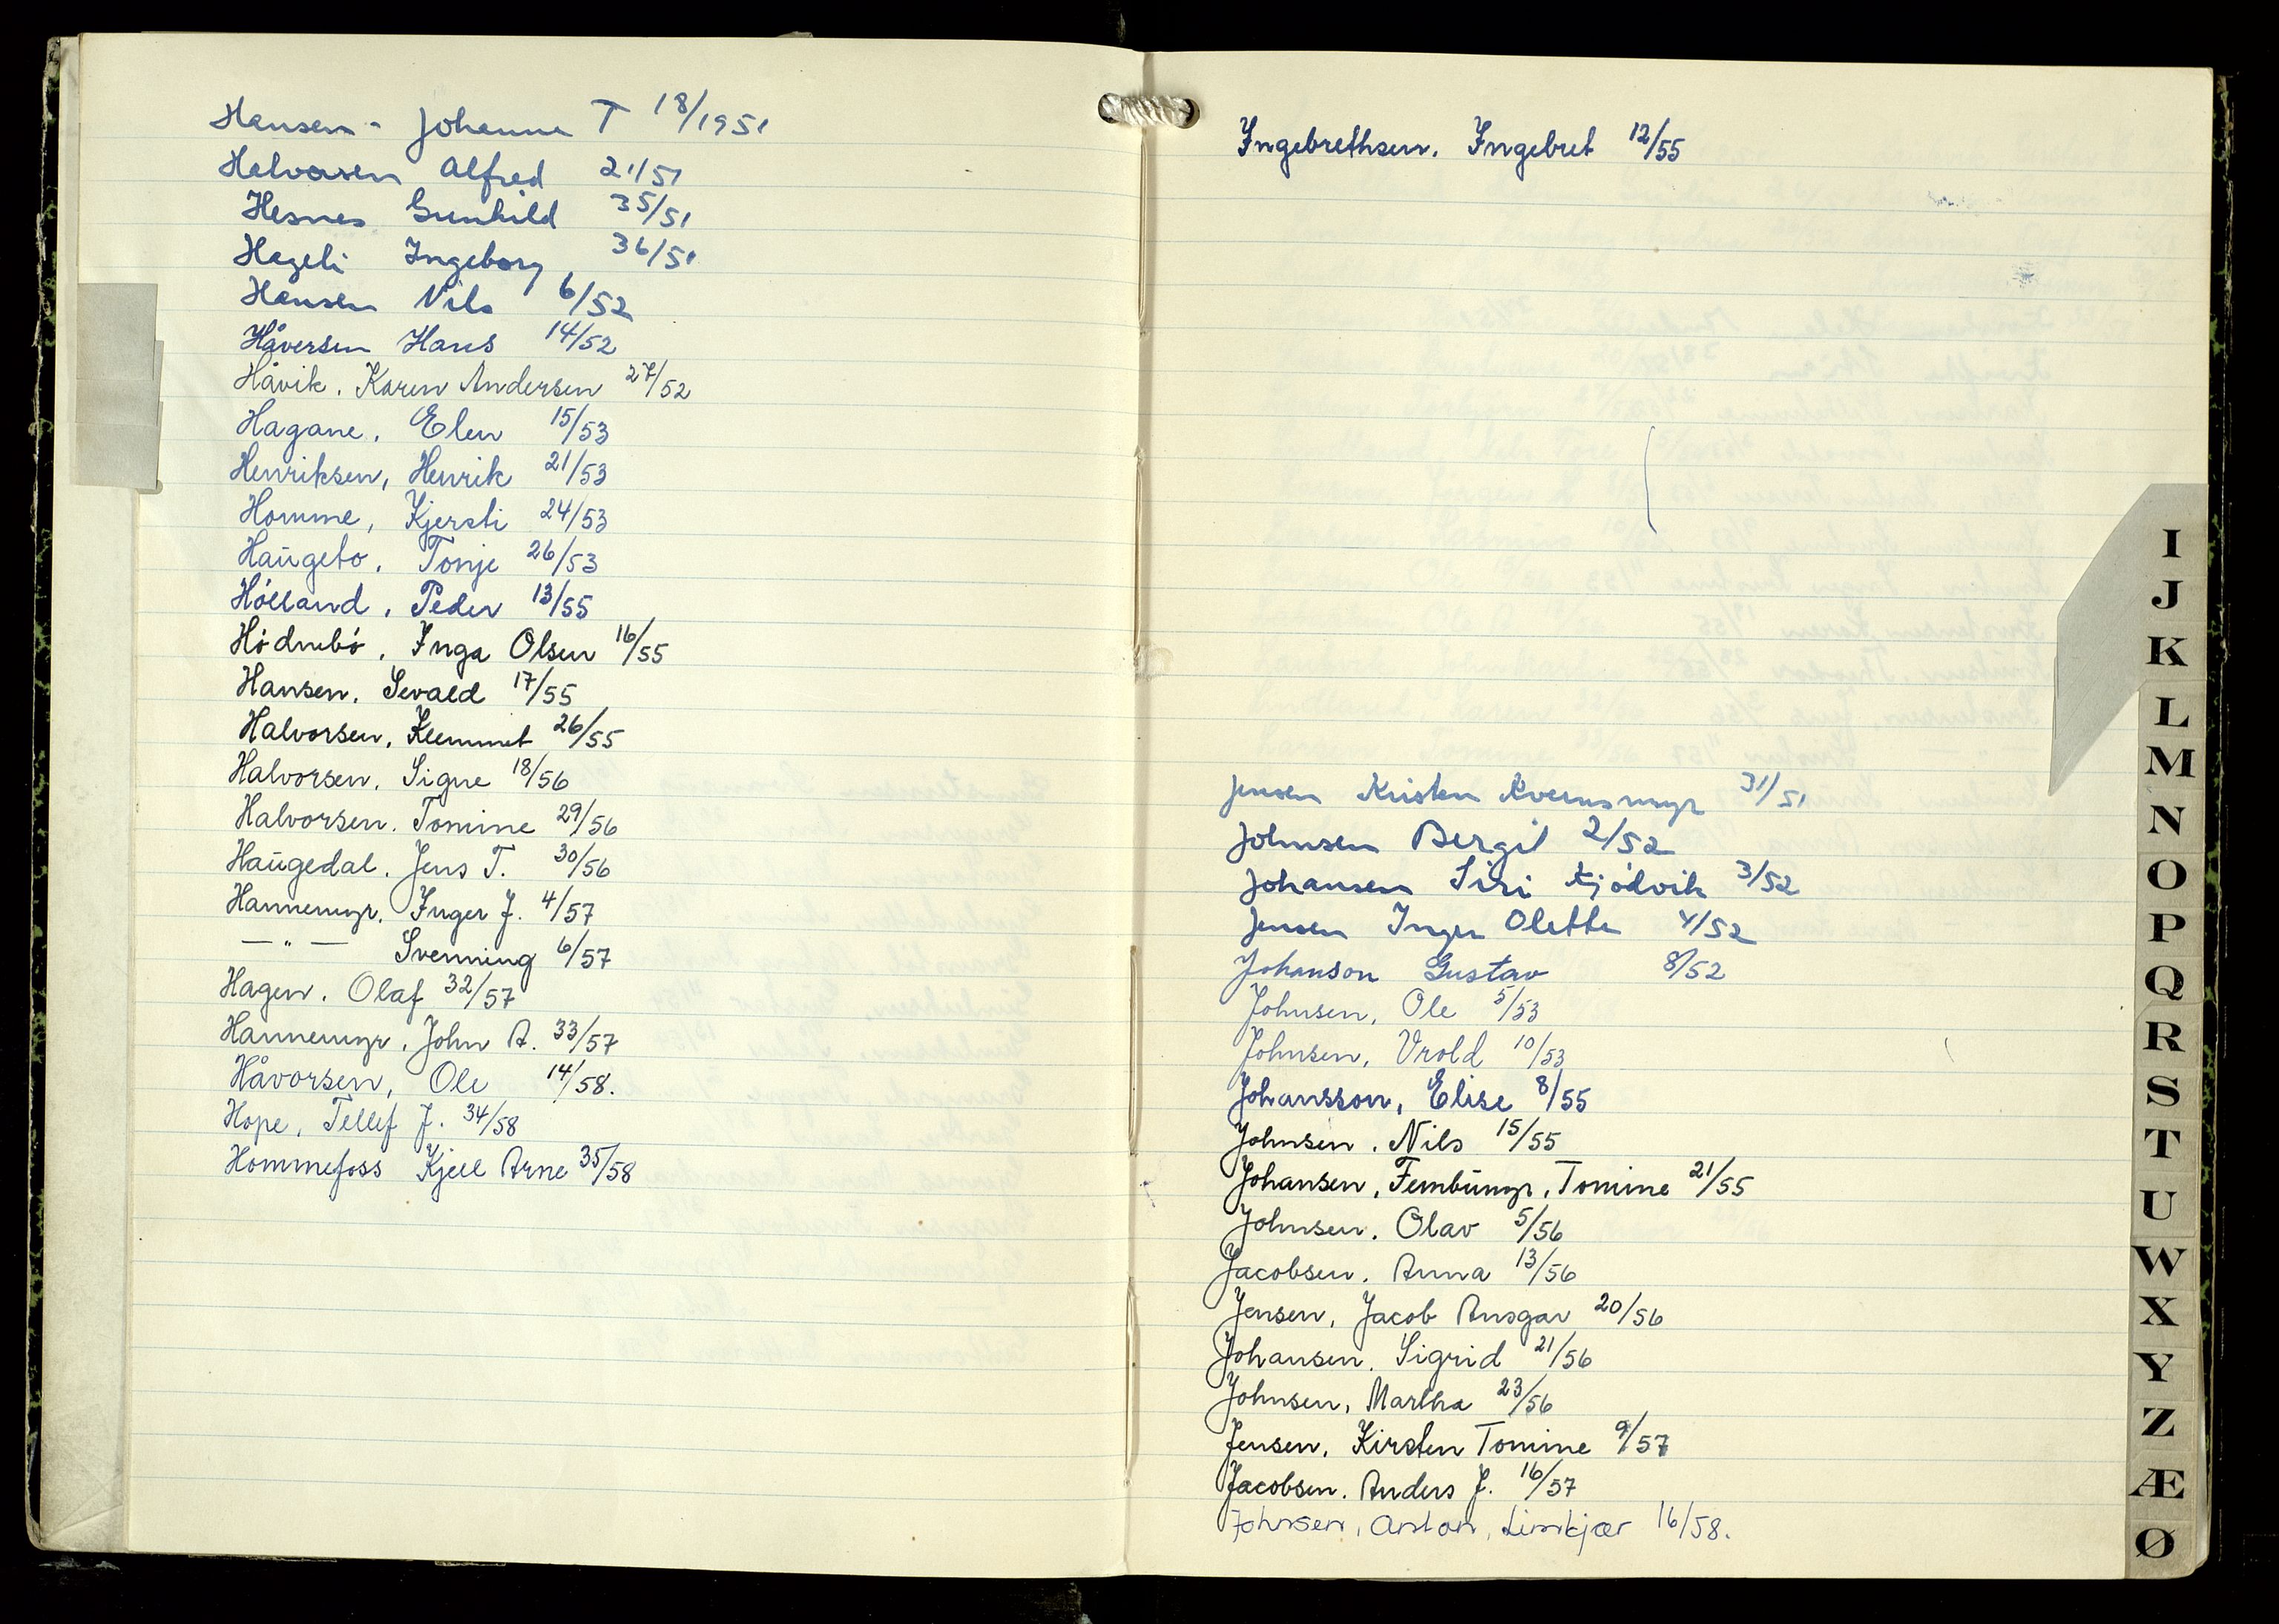 Hansen - Johanne T 18/1951
Halvorsen Alfred 21/51
Hesnes Gunhild 35/51
Hageli Ingeborg 36/51
Hansen Nils 6/52
Håversen Hans 14/52
Håvik. Karen Andersen 27/52
Hagane, Elen 15/53
Henriksen, Henrik 21/53
Homme, Kjersti 24/53
Haugebo, Tonje 26/53
Hólland, Peder 13/55
Hódnebó, Inga Olsen 16/55
Hansen, Sevald 17/55
Halvorsen, Klemmet 26/55
Halvorsen, Signe 18/56
Halvorsen. Tomine 29/56
Haugedal. Jens T. 30/56
Hannemyr, Inger J. 4/57
— " — Svenning 6/57
Hagen. Olaf 32/57
Hannemyr, John A. 33/57
Håvorsen, Ole 14/58.
Hope, Tellef J. 34/58
Hommefoss Kjell Arne 35/58
Ingebrethsen. Ingebret 12/55
Jensen Kristen Kvernsmyr 31/51
Johnsen Bergit 2/52
Johansen Siri Kjódvik 3/52
Jensen Inger Olette 4/52
Johanson Gustav 8/52
Johnsen, Ole 5/53
Johnsen, Vrold 10/53
Johansson, Elise 8/55
Johnsen. Nils 15/55
Johansen, Tembumyr, Tomine 21/55
Johnsen. Olav 5/56
Jacobsen. Anna 13/56
Jensen, Jacob Ansgar 20/56
Johansen. Sigrid 21/56
Johnsen, Martha 23/56
Jensen, Kirsten Tomine 9/57
Jacobsen. Anders J. 16/57
Johnsen, Anton, Limkjær 16/58.
I
J
K
L
M
N
O
P
Q
R
S
T
U
W
X
Y
Z
Æ
Ø